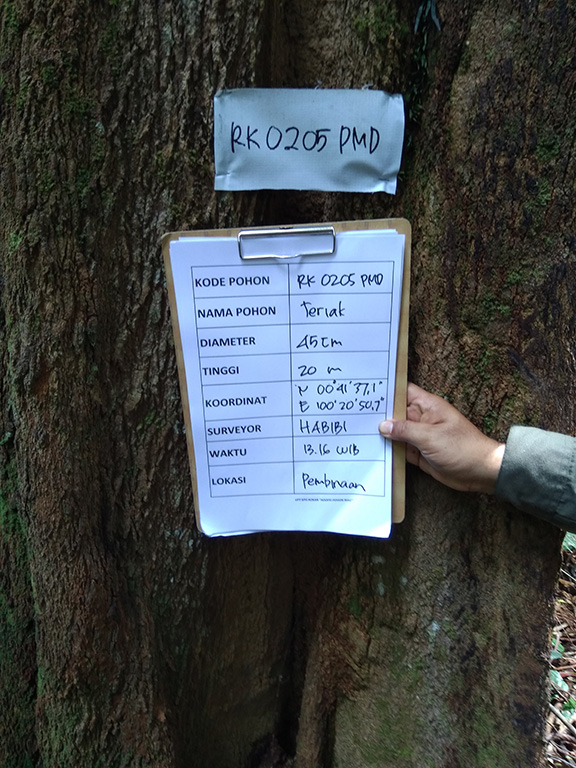 RK 0205 PMD
KODE POHON RK 0205 PMD
NAMA POHON Teriak
DIAMETER 45 cm
TINGGI 20 m
KOORDINAT N 00°41'37,1"
E 100°20'50,7"
SURVEYOR HABIBI
WAKTU 13.16 WIB
LOKASI Pembinaan